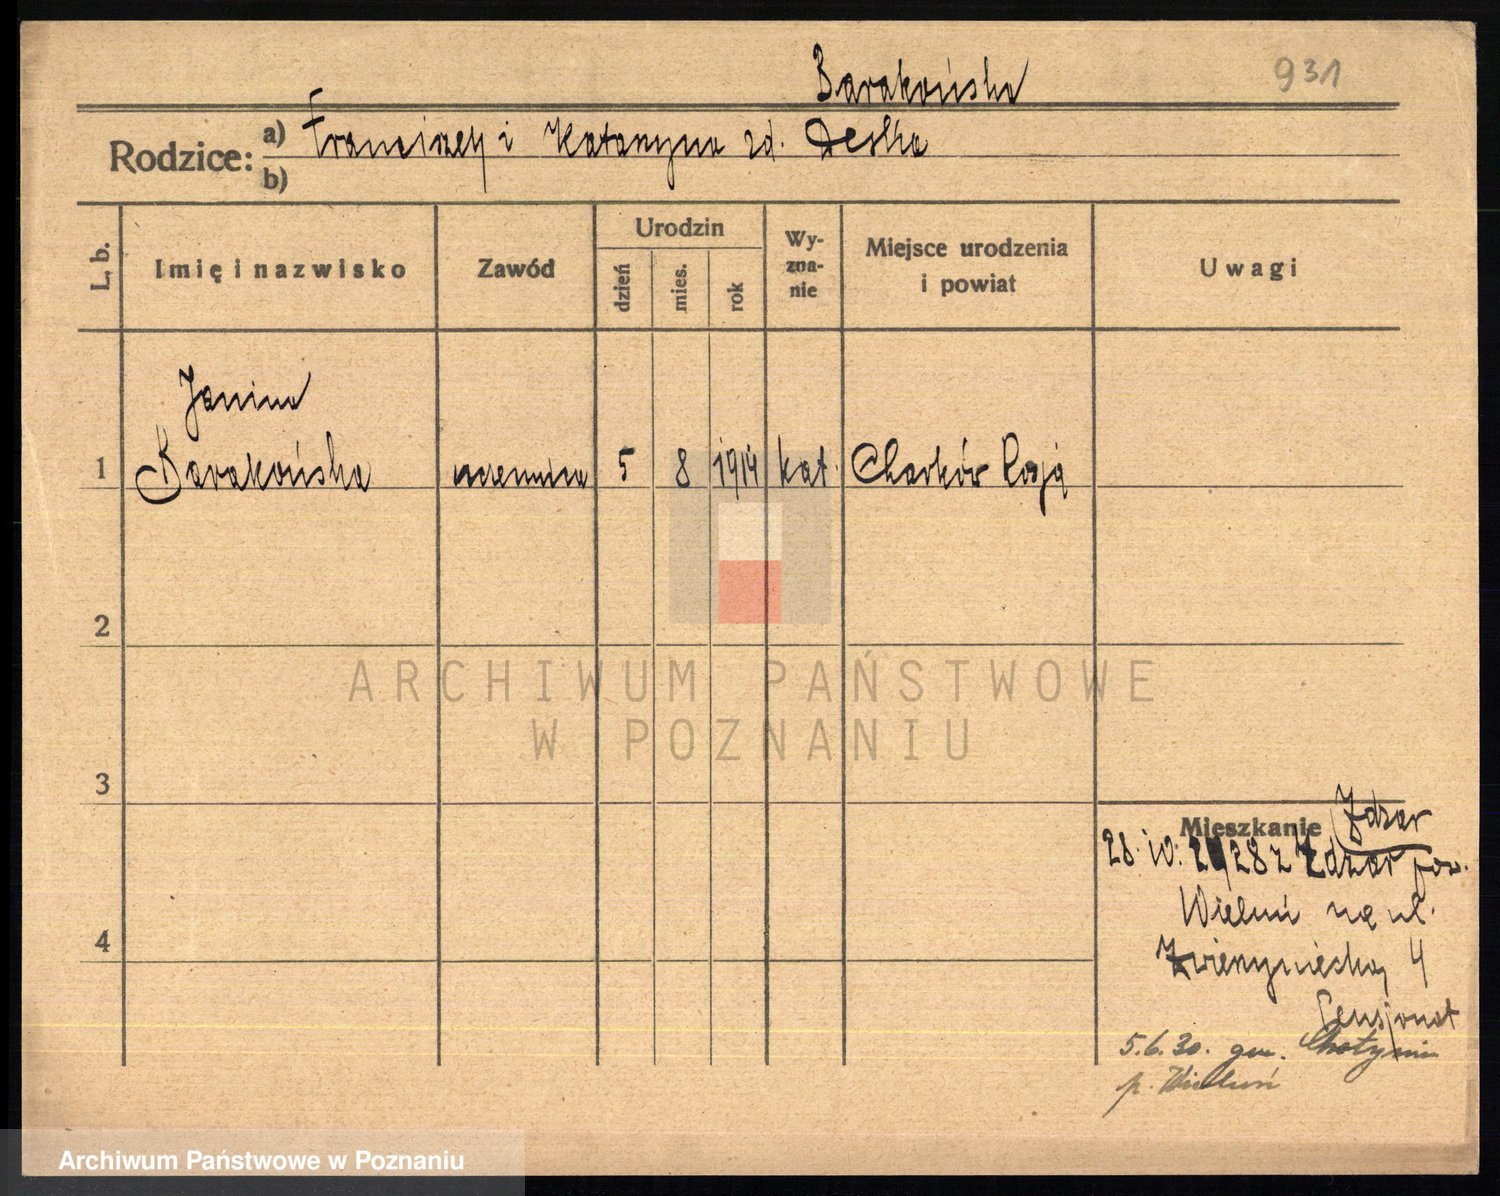 931
Barakońska
Rodzice: a) Franciszek i Katarzyna zd. Deska
b)
L. b.
Imię i nazwisko
Zawód
Urodzin
dzień
mies.
rok
Wy-
zna-
nie
Miejsce urodzenia
i powiat
Uwagi
Janina
1 Barakońska uczennica 5 8 1914 kat. Charków Rosja
2
ARCHIWUM PAŃSTWOWE
W POZNANIU
3
Mieszkanie
28. IV. 28 z pow.
Wieluń na ul.
Zwierzyniecką 4
Pensjonat
5.6.30. gm.
p. Wieluń
4
Archiwum Państwowe w Poznaniu